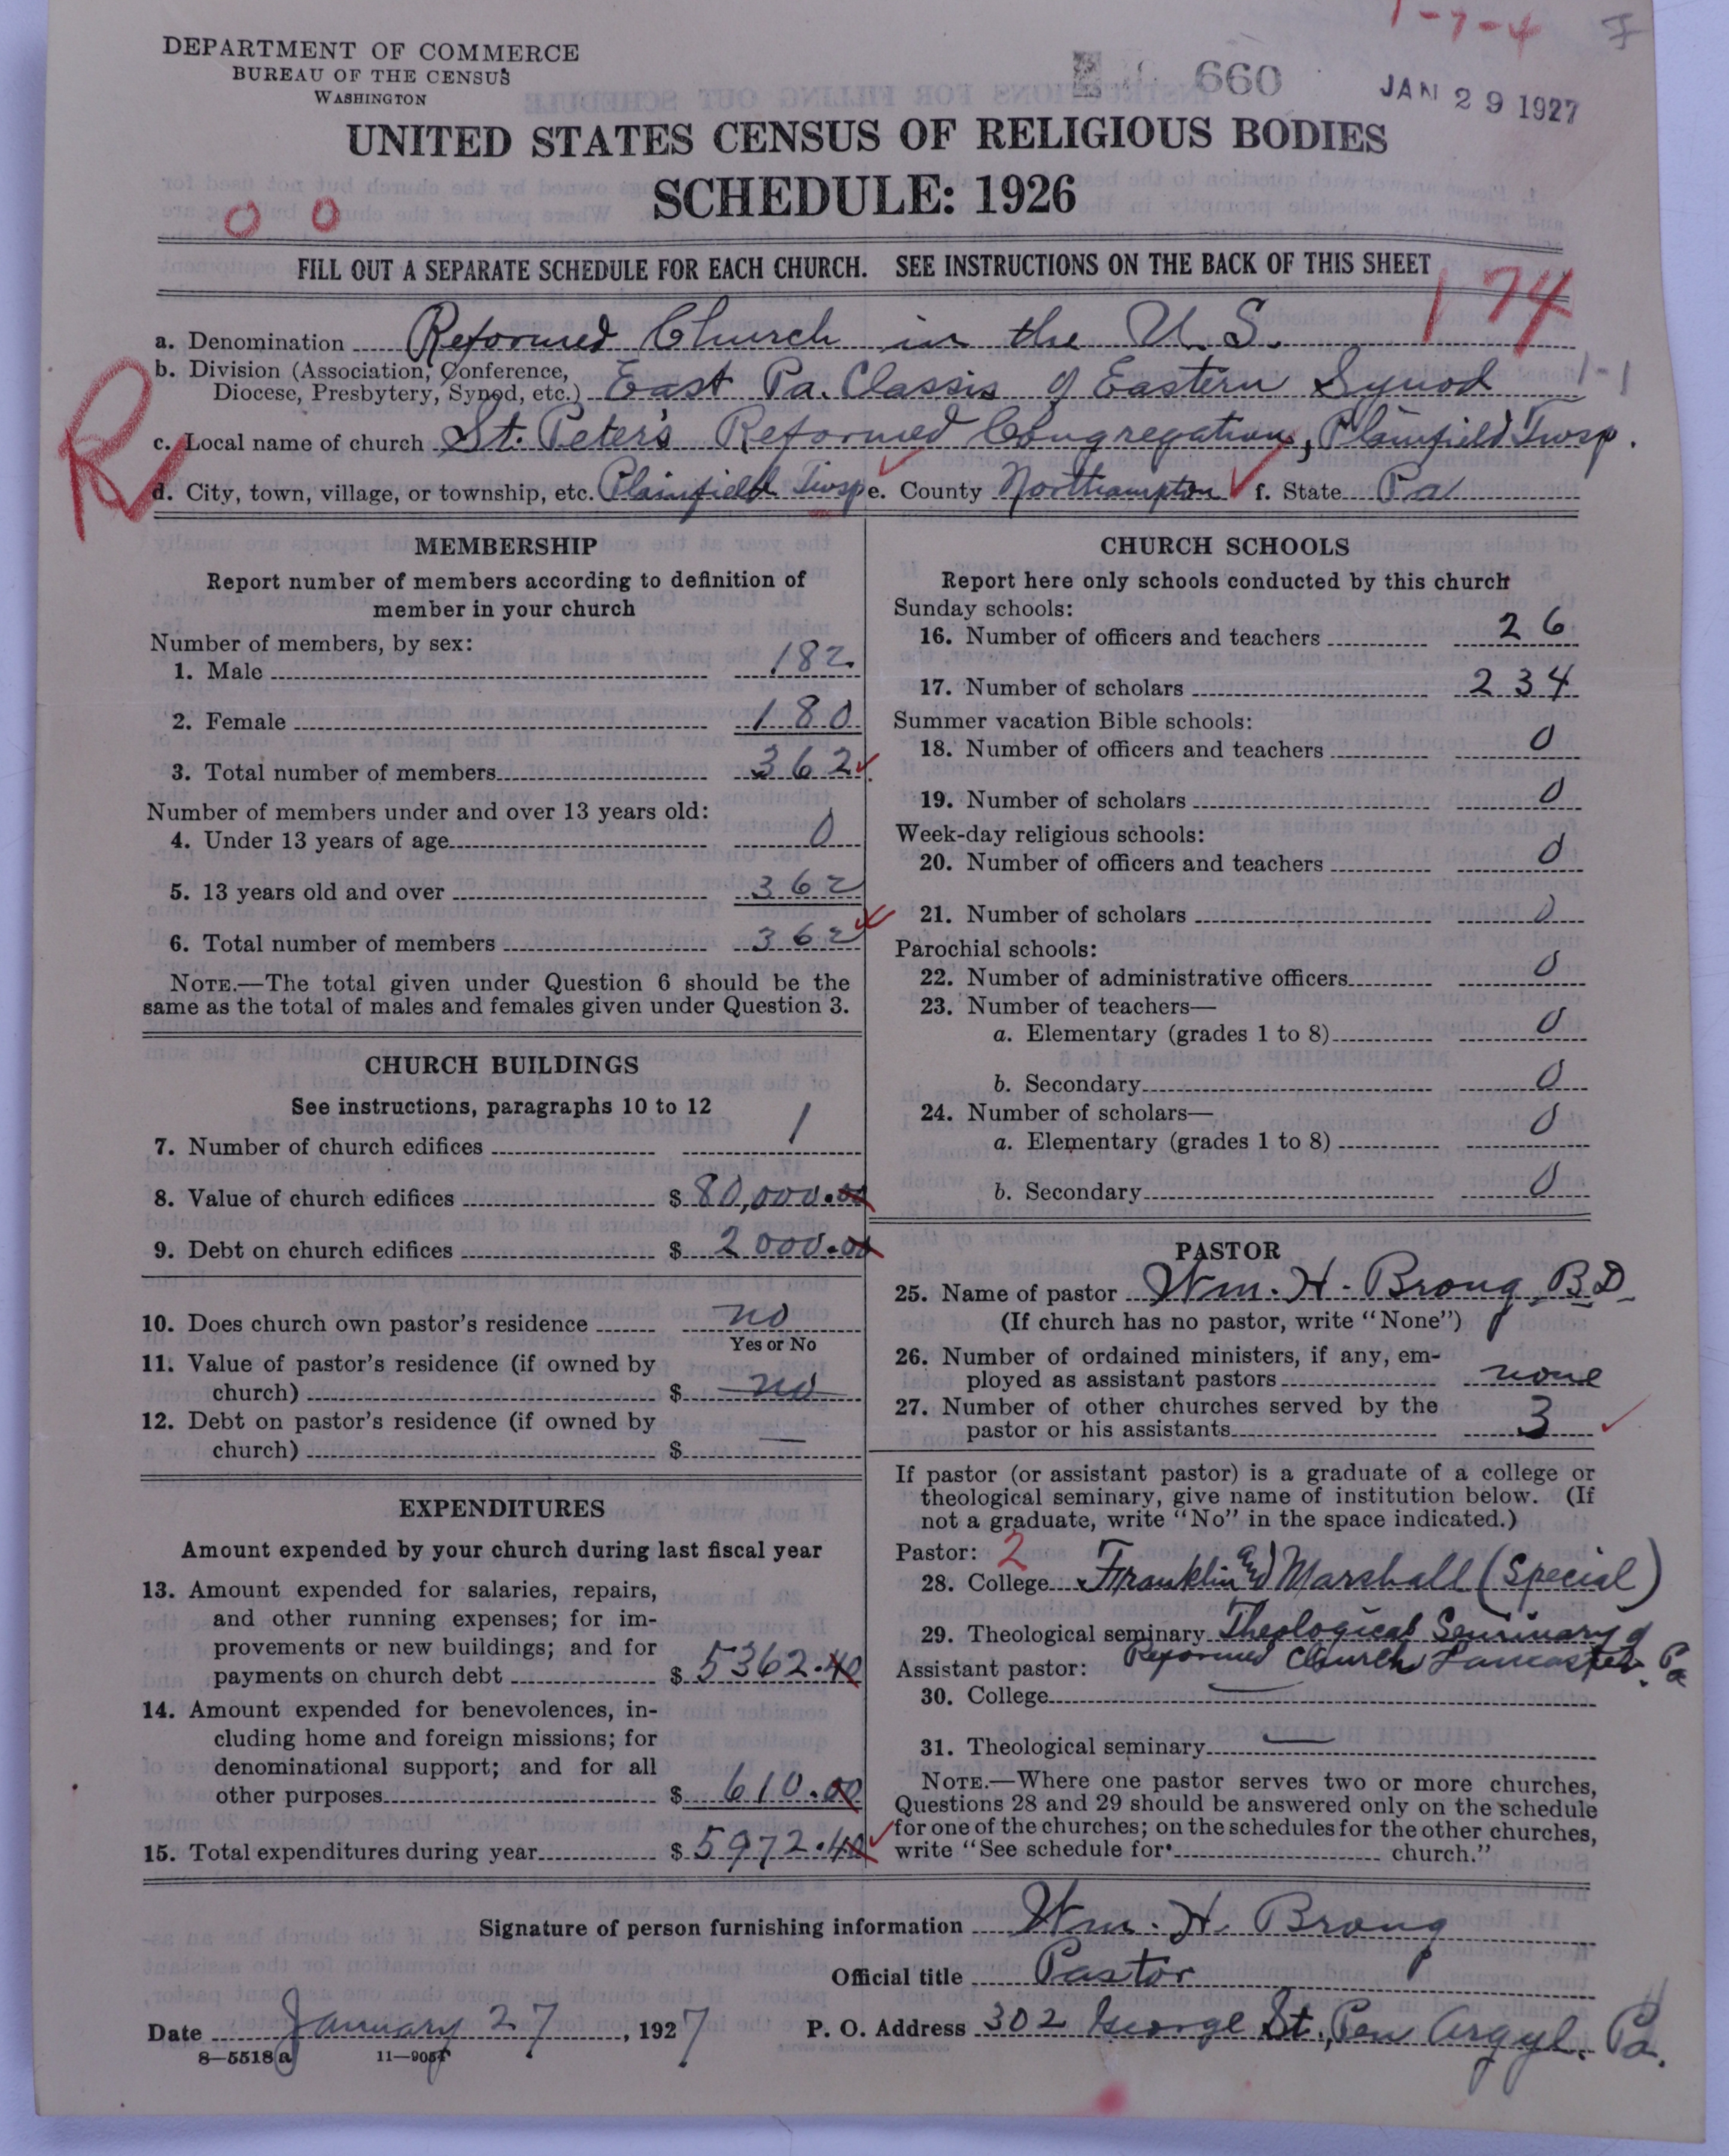 1-7-4
DEPARTMENT OF COMMERCE
BUREAU OF THE CENSUS
WASHINGTON
660
JAN 29 1927
UNITED STATES CENSUS OF RELIGIOUS BODIES
SCHEDULE: 1926
0 0
FILL OUT A SEPARATE SCHEDULE FOR EACH CHURCH. SEE INSTRUCTIONS ON THE BACK OF THIS SHEET
174
a. Denomination Reformed Church in the U.S.
b. Division (Association, Conference,
Diocese, Presbytery, Synod, etc.) East Pa. Classis of Eastern Synod 1-1
c. Local name of church St. Peter's Reformed Congregation, Plainfield Twsp.
d. City, town, village, or township, etc. Plainfield Twsp e. County Northampton f. State Pa
MEMBERSHIP
Report number of members according to definition of
member in your church
Number of members, by sex:
1. Male 182
2. Female 180
3. Total number of members 362
Number of members under and over 13 years old:
4. Under 13 years of age 0
5. 13 years old and over 362
6. Total number of members 362
NOTE.—The total given under Question 6 should be the
same as the total of males and females given under Question 3.
CHURCH BUILDINGS
See instructions, paragraphs 10 to 12
7. Number of church edifices 1
8. Value of church edifices $ 80,000.00
9. Debt on church edifices $ 2000.00
10. Does church own pastor's residence no
Yes or No
11. Value of pastor's residence (if owned by
church) $ no
12. Debt on pastor's residence (if owned by
church) $ —
EXPENDITURES
Amount expended by your church during last fiscal year
13. Amount expended for salaries, repairs,
and other running expenses; for im-
provements or new buildings; and for
payments on church debt $ 5362.40
14. Amount expended for benevolences, in-
cluding home and foreign missions; for
denominational support; and for all
other purposes $ 610.00
15. Total expenditures during year $ 5972.40
CHURCH SCHOOLS
Report here only schools conducted by this church
Sunday schools:
16. Number of officers and teachers 26
17. Number of scholars 234
Summer vacation Bible schools:
18. Number of officers and teachers 0
19. Number of scholars 0
Week-day religious schools:
20. Number of officers and teachers 0
21. Number of scholars 0
Parochial schools:
22. Number of administrative officers 0
23. Number of teachers—
a. Elementary (grades 1 to 8) 0
b. Secondary 0
24. Number of scholars—
a. Elementary (grades 1 to 8) 0
b. Secondary 0
PASTOR
25. Name of pastor Wm. H. Brong, B.D.
(If church has no pastor, write "None")
26. Number of ordained ministers, if any, em-
ployed as assistant pastors none
27. Number of other churches served by the
pastor or his assistants 3
If pastor (or assistant pastor) is a graduate of a college or
theological seminary, give name of institution below. (If
not a graduate, write "No" in the space indicated.)
Pastor: 2
28. College Franklin and Marshall (Special)
29. Theological seminary Theological Seminary of
Reformed Church Lancaster. Pa
Assistant pastor:
30. College —
31. Theological seminary —
NOTE.—Where one pastor serves two or more churches,
Questions 28 and 29 should be answered only on the schedule
for one of the churches; on the schedules for the other churches,
write "See schedule for church."
Signature of person furnishing information Wm. H. Brong
Official title Pastor
Date January 27, 1927 P. O. Address 302 George St., Pen Argyl, Pa.
8—5518a 11—9054